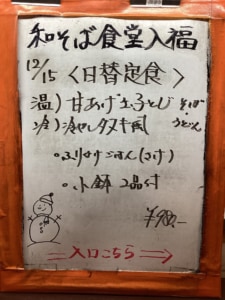 和そば食堂入福
12/15 〈日替定食〉
温) 甘あげ玉子とじ そば・うどん
冷) 冷やしタヌキ風
・ふりかけごはん(さけ)
・小鉢 2品付
¥980.-
入口こちら